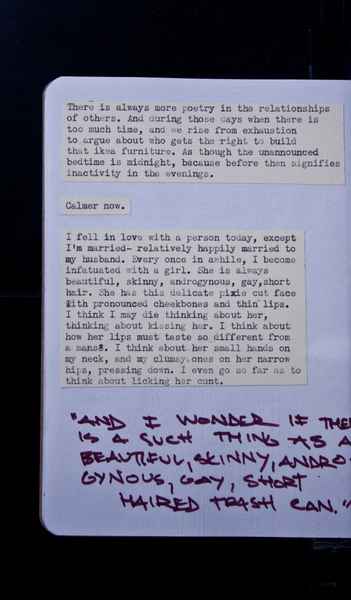 There is always more poetry in the relationships
of others. And during those days when there is
too much time, and we rise from exhaustion
to argue about who gets the right to build
that ikea furniture. As though the unannounced
bedtime is midnight, because before then signifies
inactivity in the evenings.
Calmer now.
I fell in love with a person today, except
I'm married- relatively happily married to
my husband. Every once in awhile, I become
infatuated with a girl. She is always
beautiful, skinny, androgynous, gay,short
hair. She has this delicate pixie cut face
with pronounced cheekbones and thin lips.
I think I may die thinking about her,
thinking about kissing her. I think about
how her lips must taste so different from
a mans. I think about her small hands on
my neck, and my clumsy ones on her narrow
hips, pressing down. I even go so far as to
think about licking her cunt.
"AND I WONDER IF THE
IS A SUCH THING AS A
BEAUTIFUL, SKINNY, ANDRO-
GYNOUS, GAY, SHORT
HAIRED TRASH CAN."